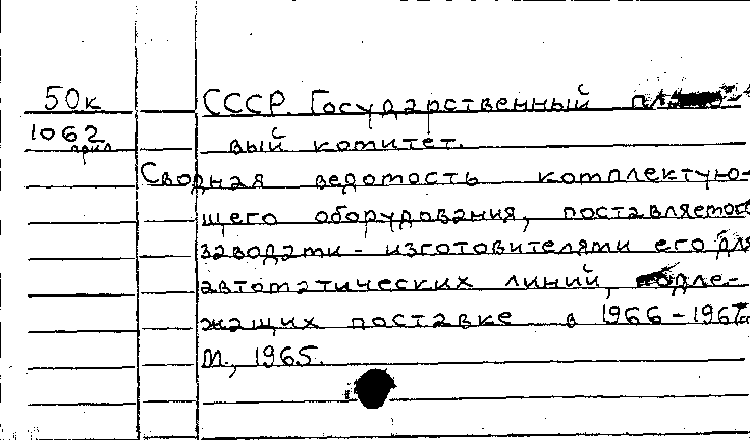 50к СССР. Государственный плано-
1062 вый комитет.
прил
Сводная ведомость комплектую-
щего оборудования, поставляемого
заводами - изготовителями его для
автоматических линий, подле-
жащих поставке в 1966-1967
М., 1965.